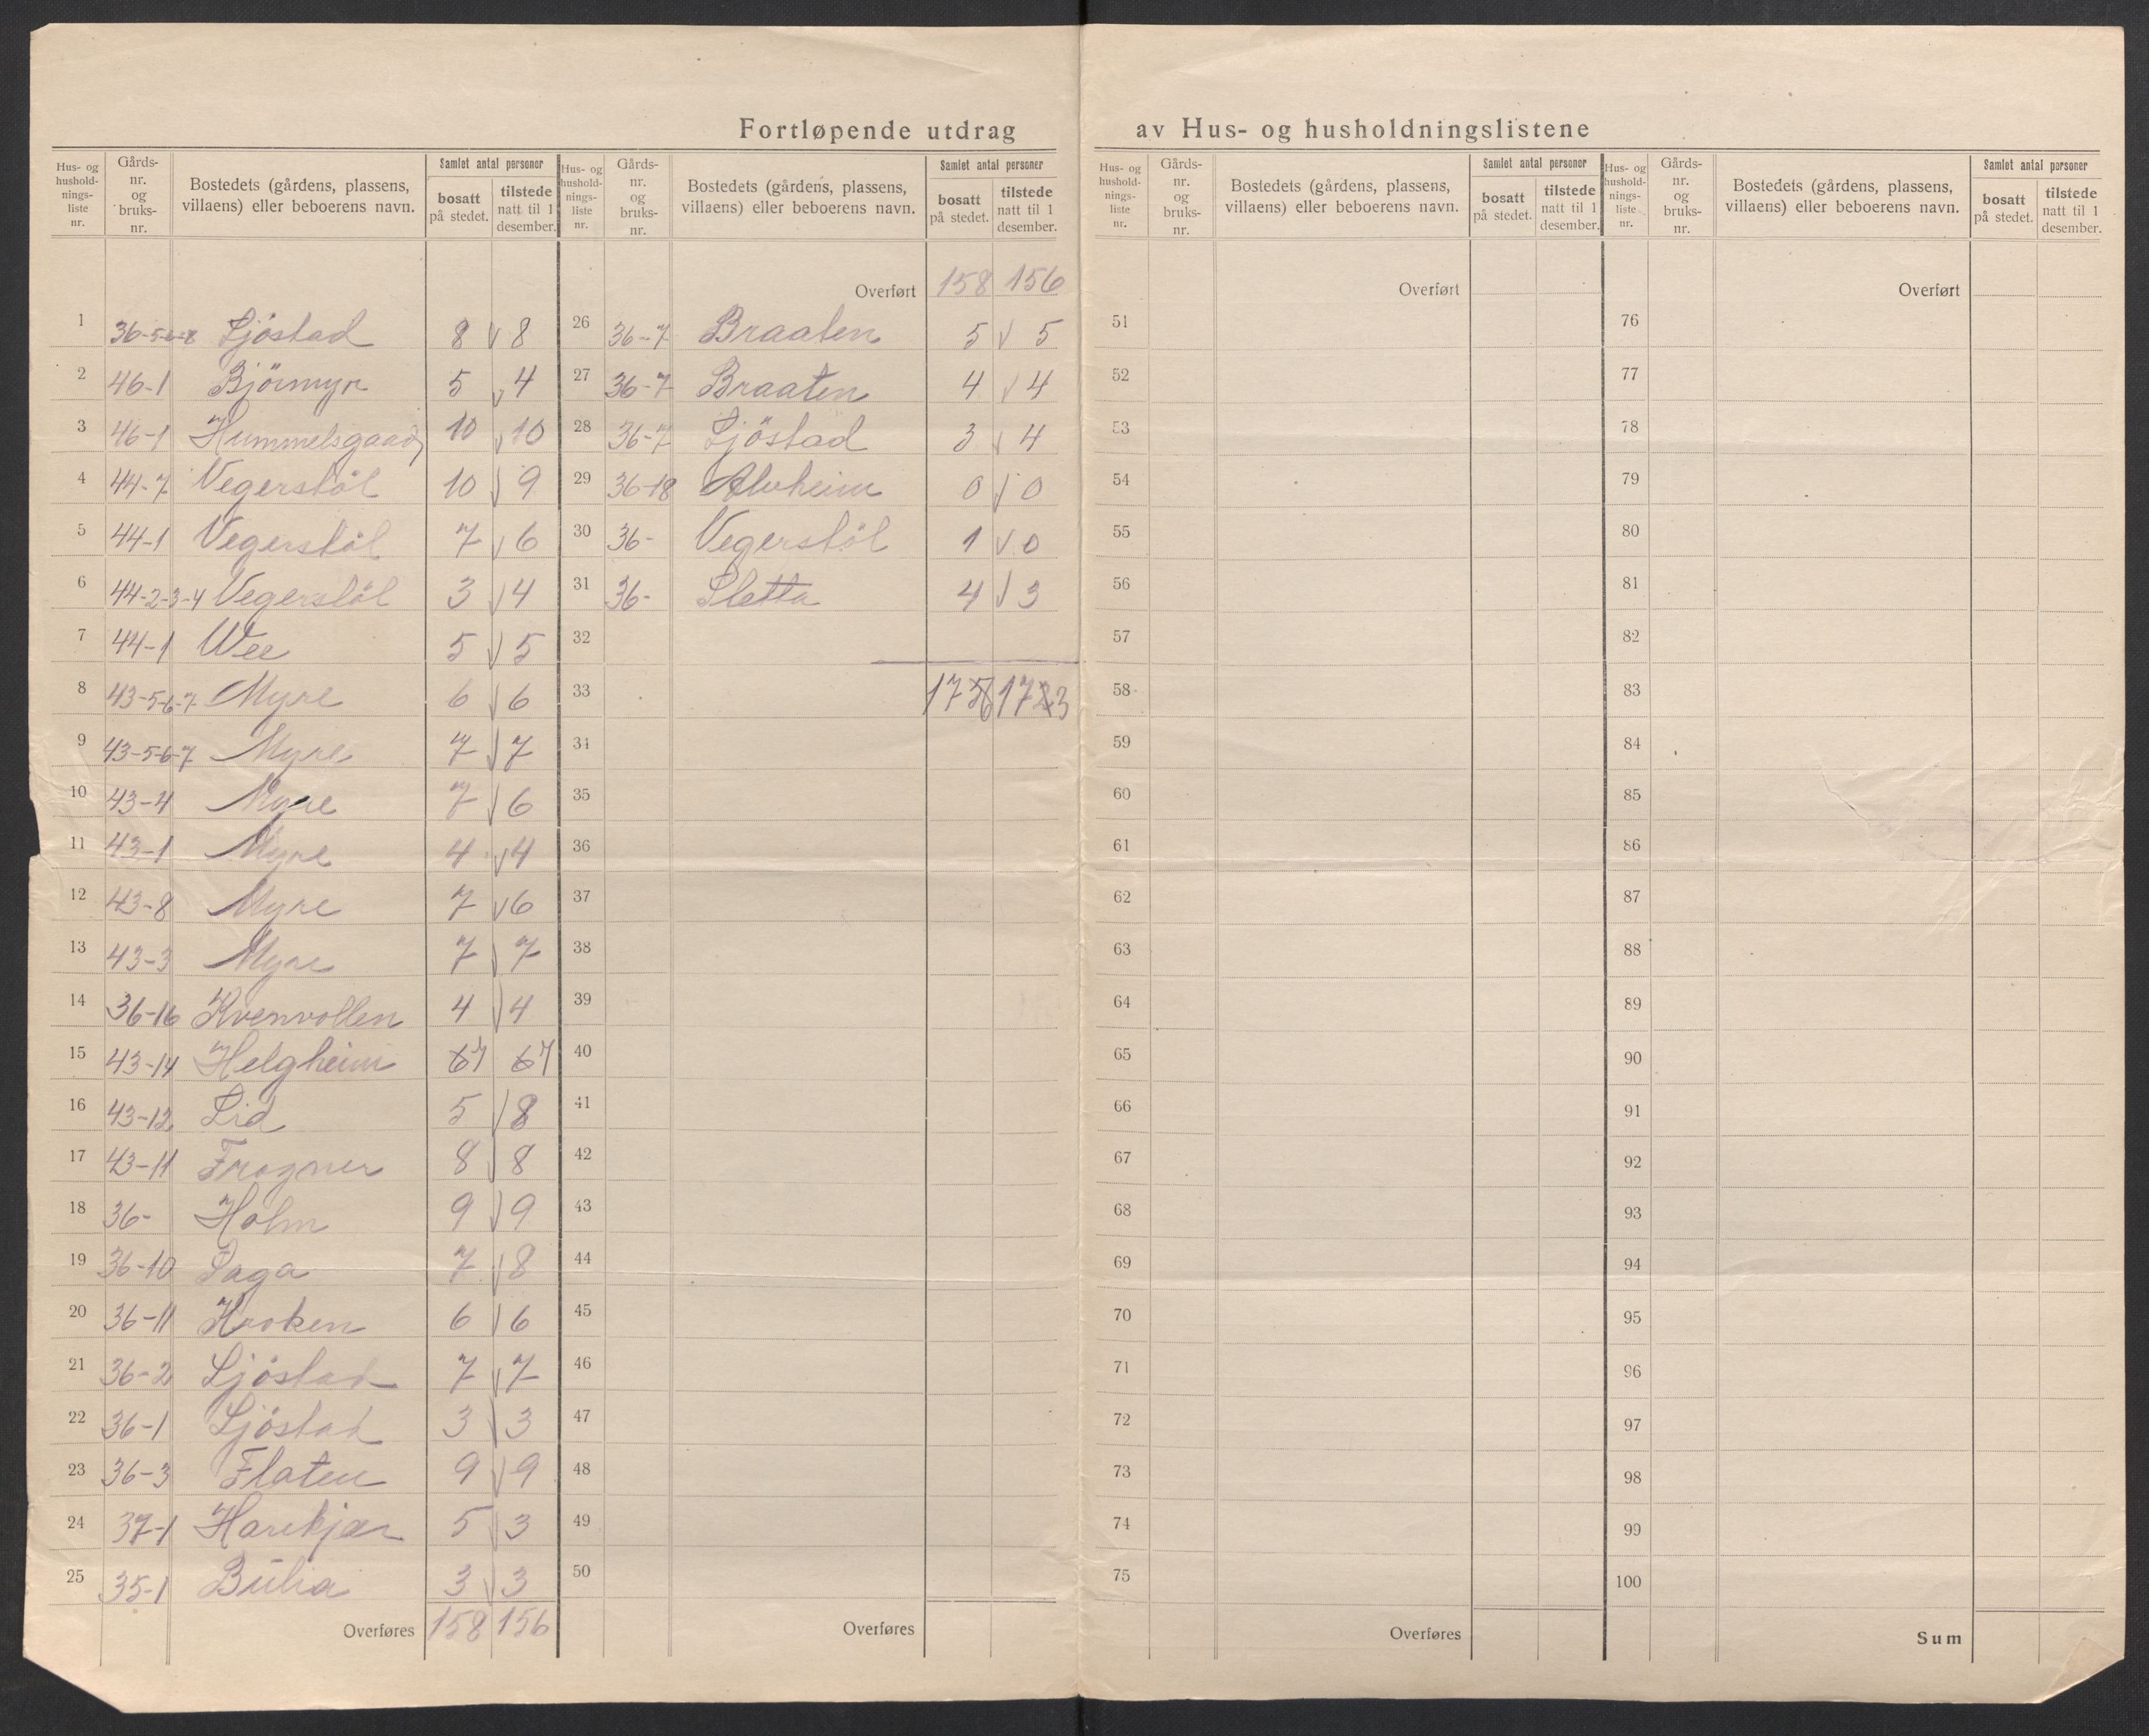 Fortløpende utdrag av Hus- og husholdningslistene
Hus- og hushold- nings- liste nr. | Gårds- nr. og bruks- nr. | Bostedets (gårdens, plassens, villaens) eller beboerens navn. | Samlet antal personer | bosatt på stedet. | tilstede natt til 1 desember.
1 36-5-6-8 Ljöstad 8 8
2 46-1 Björmyr 5 4
3 46-1 Hummelsgaard 10 10
4 44-7 Vegerstöl 10 9
5 44-1 Vegerstöl 7 6
6 44-2-3-4 Vegerstöl 3 4
7 44-1 Wee 5 5
8 43-5-6-7 Myre 6 6
9 43-5-6-7 Myre 7 7
10 43-4 Myre 7 6
11 43-1 Myre 4 4
12 43-8 Myre 7 6
13 43-3 Myre 7 7
14 36-16 Kvenvollen 4 4
15 43-14 Helgheim 67 67
16 43-12 Lid 5 8
17 43-11 Frogner 8 8
18 36- Holm 9 9
19 36-10 Saga 7 8
20 36-11 Kroken 6 6
21 36-2 Ljöstad 7 7
22 36-1 Ljöstad 3 3
23 36-3 Flaten 9 9
24 37-1 Harekjær 5 3
25 35-1 Bulia 3 3
Overføres 158 156
Hus- og hushold- nings- liste nr. | Gårds- nr. og bruks- nr. | Bostedets (gårdens, plassens, villaens) eller beboerens navn. | Samlet antal personer | bosatt på stedet. | tilstede natt til 1 desember.
Overført 158 156
26 36-7 Braaten 5 5
27 36-7 Braaten 4 4
28 36-7 Ljöstad 3 4
29 36-18 Alvheim 0 0
30 36- Vegerstöl 1 0
31 36- Sletta 4 3
32
33 1756 1723
34
35
36
37
38
39
40
41
42
43
44
45
46
47
48
49
50
Overføres
Hus- og hushold- nings- liste nr. | Gårds- nr. og bruks- nr. | Bostedets (gårdens, plassens, villaens) eller beboerens navn. | Samlet antal personer | bosatt på stedet. | tilstede natt til 1 desember.
Overført
51
52
53
54
55
56
57
58
59
60
61
62
63
64
65
66
67
68
69
70
71
72
73
74
75
Overføres
Hus- og hushold- nings- liste nr. | Gårds- nr. og bruks- nr. | Bostedets (gårdens, plassens, villaens) eller beboerens navn. | Samlet antal personer | bosatt på stedet. | tilstede natt til 1 desember.
Overført
76
77
78
79
80
81
82
83
84
85
86
87
88
89
90
91
92
93
94
95
96
97
98
99
100
Sum